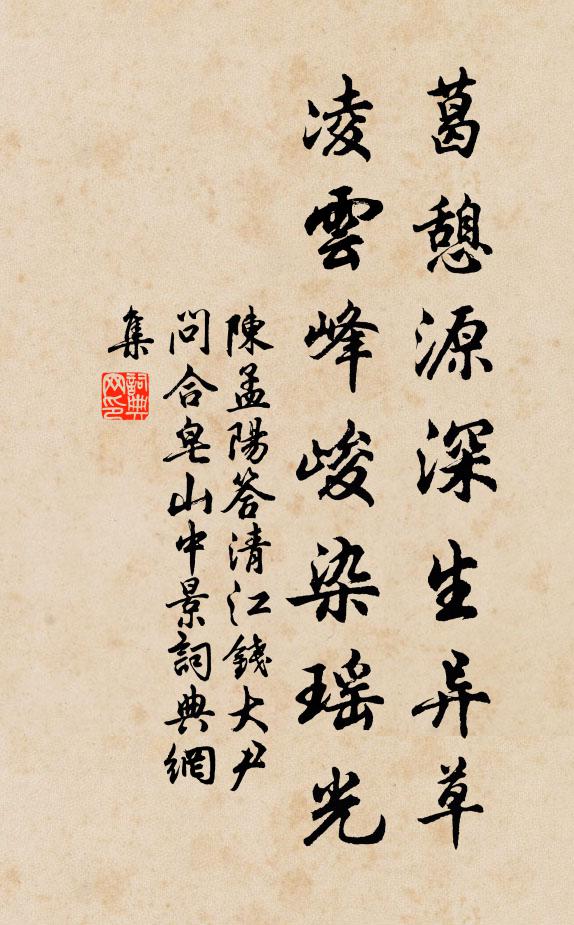 葛憩源深生异草
凌雲峰峻染瑶光
陳孟陽答清江錢大尹
問合皂山中景詞典網
集
詞典
网印